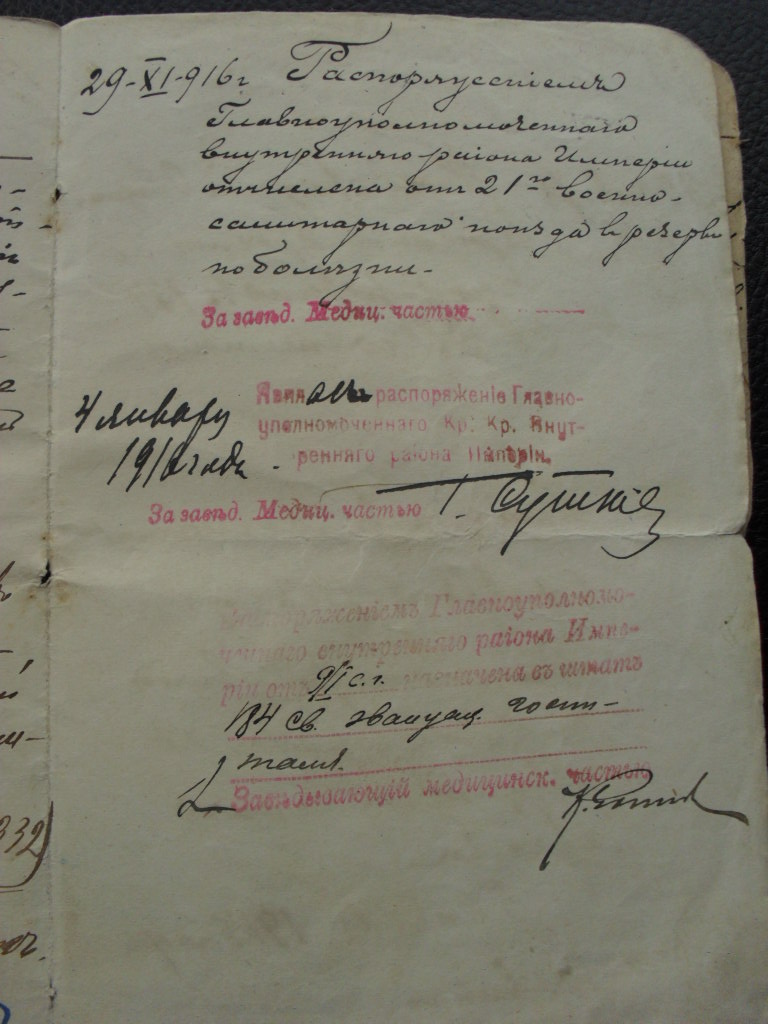 29-XI-916 г Распоряженіемъ
Главноуполномоченнаго
внутренняго раіона Имперіи
отчислена отъ 21го военно-
санитарнаго поѣзда въ резервъ
по болѣзни.-
За завѣд. Медиц. частью
Явилась распоряженіе Главно-
4 января уполномоченнаго Кр. Кр. Внут-
1916 года. ренняго раіона Имперіи.
За завѣд. Медиц. частью
Распоряженіемъ Главноуполномо-
ченнаго внутренняго раіона Импе-
ріи отъ 9/I с.г. назначена въ штатъ
184 св. эвакуац. госпи-
таля.
Завѣдывающій медицинск. частью
332)